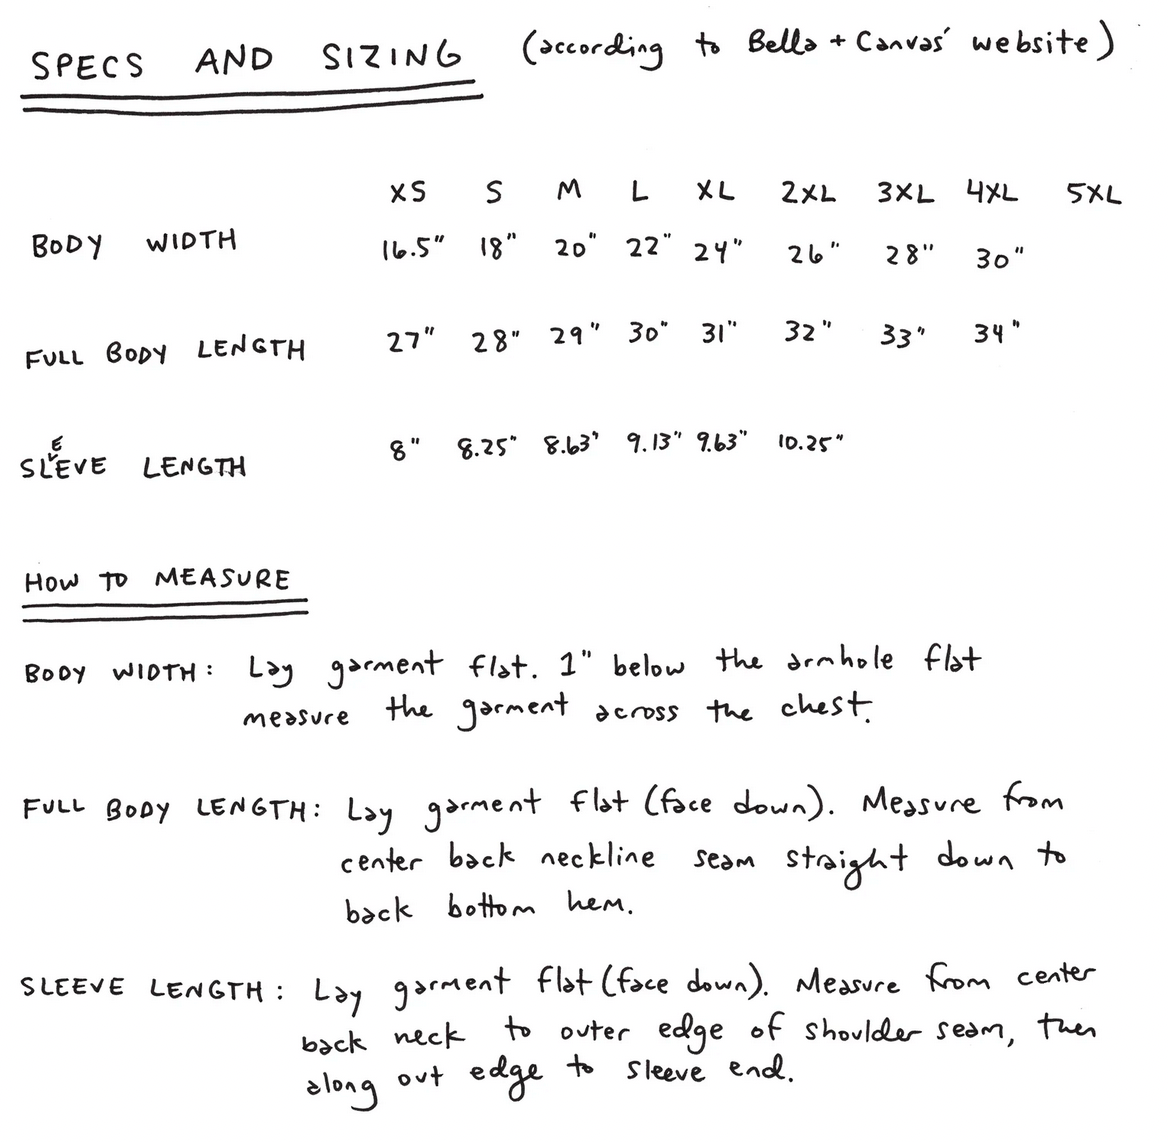 SPECS AND SIZING (according to Bella + Canvas' website)
XS S M L XL 2XL 3XL 4XL 5XL
BODY WIDTH 16.5" 18" 20" 22" 24" 26" 28" 30"
FULL BODY LENGTH 27" 28" 29" 30" 31" 32" 33" 34"
SLEEVE LENGTH 8" 8.25" 8.63" 9.13" 9.63" 10.25"
HOW TO MEASURE
BODY WIDTH: Lay garment flat. 1" below the armhole flat
measure the garment across the chest.
FULL BODY LENGTH: Lay garment flat (face down). Measure from
center back neckline seam straight down to
back bottom hem.
SLEEVE LENGTH: Lay garment flat (face down). Measure from center
back neck to outer edge of shoulder seam, then
along out edge to sleeve end.